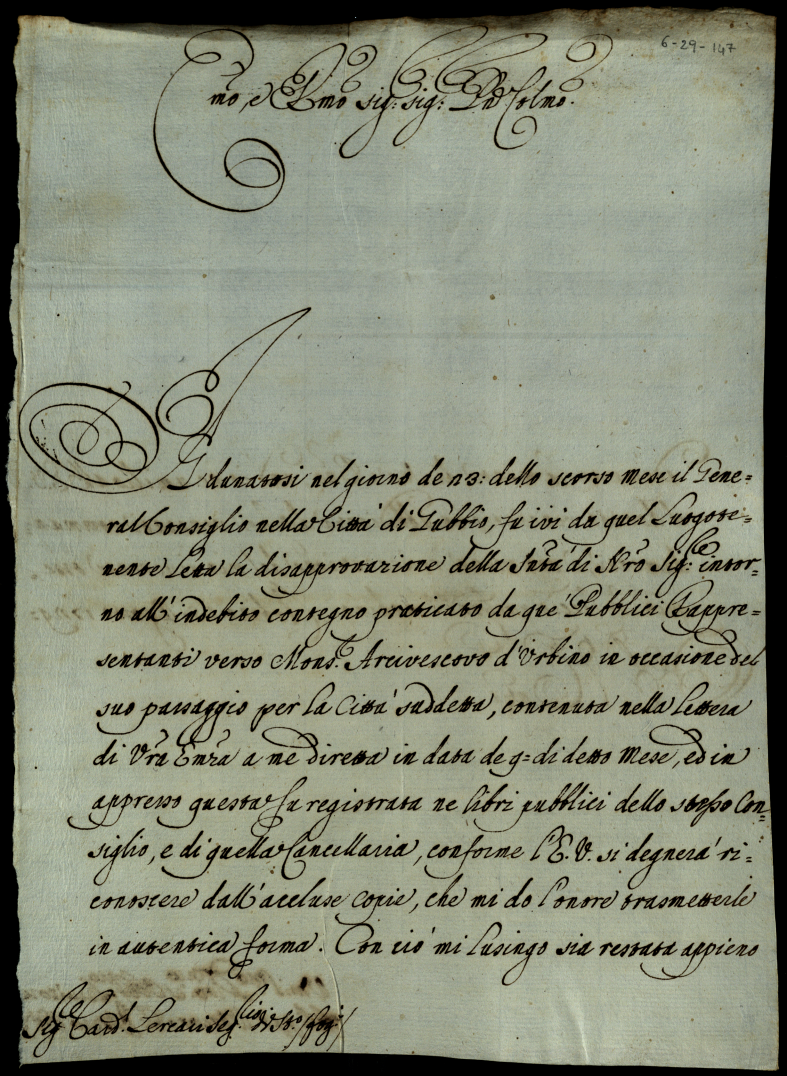 6-29-147
Emo, e Rmo Sig: Sig: Pne Colmo.
Adunatosi nel giorno de 23: dello scorso mese il Gene=
ral Consiglio nella Città di Gubbio, fu ivi da quel Luogote=
nente letta la disapprovazione della Sntà di Nro Sig:re intor=
no all' indebito contegno praticato da que' Pubblici Rappre=
sentanti verso Mons.r Arcivescovo d'Urbino in occasione del
suo passaggio per la Città suddetta, contenuta nella lettera
di Vra Emza a mé diretta in data de 9= di detto Mese, ed in
appresso questa fu registrata ne libri pubblici dello stesso Con=
siglio, e di quella Cancellaria, conforme l'E.V. si degnerà ri=
conoscere dall' accluse copie, che mi do l'onore trasmetterle
in autentica forma. Con ciò mi lusingo sia restata appieno
Sig.re Card.l Lercari Seg.rio di Sto